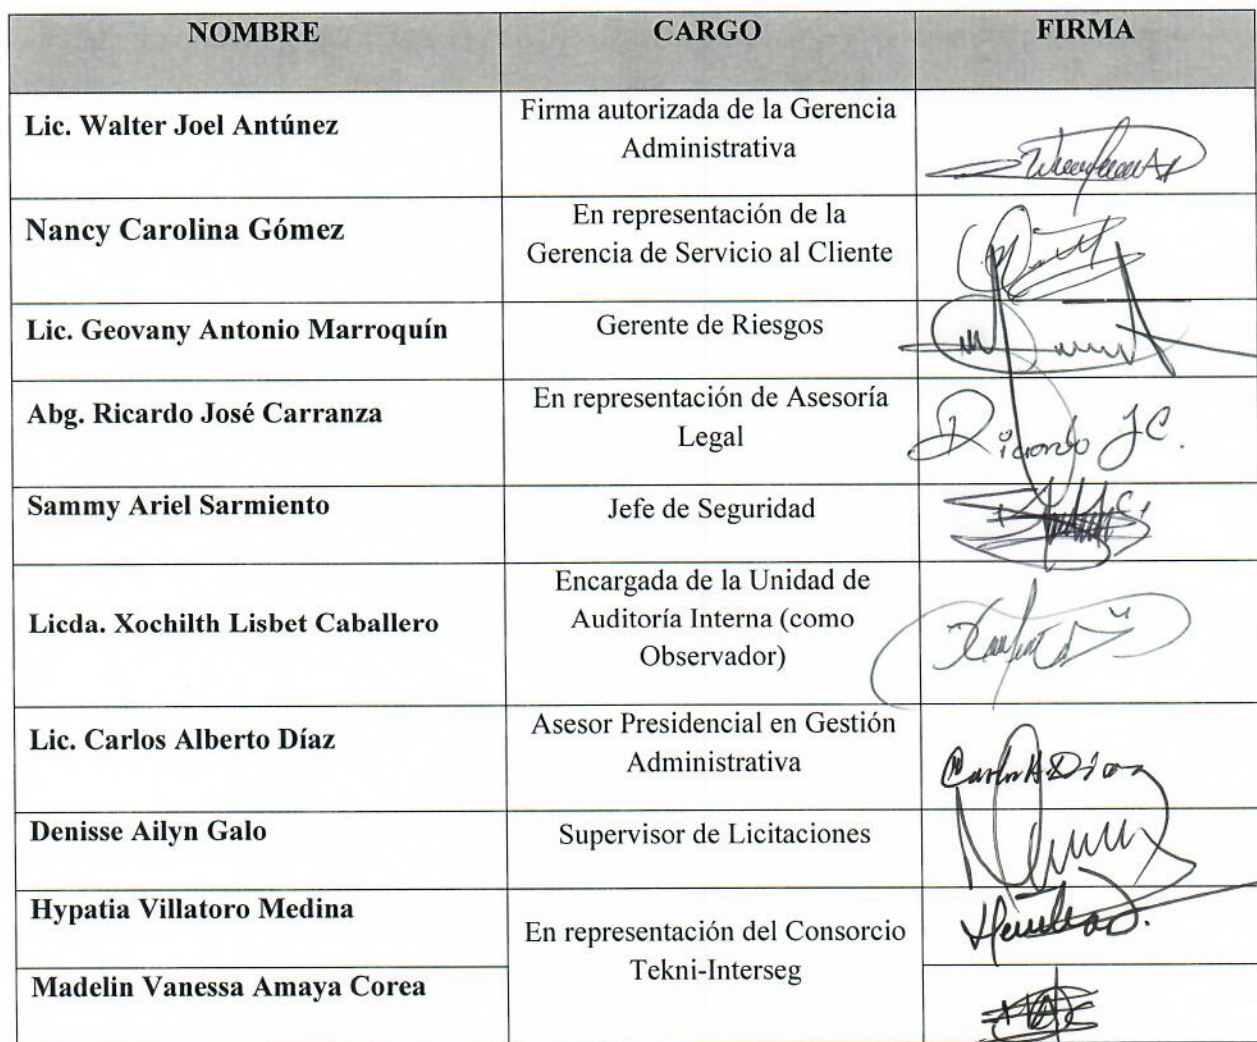 NOMBRE CARGO FIRMA
Lic. Walter Joel Antúnez
Firma autorizada de la Gerencia
Administrativa
Nancy Carolina Gómez
En representación de la
Gerencia de Servicio al Cliente
Lic. Geovany Antonio Marroquín
Gerente de Riesgos
Abg. Ricardo José Carranza
En representación de Asesoría
Legal
Ricardo JC.
Sammy Ariel Sarmiento
Jefe de Seguridad
Licda. Xochilth Lisbet Caballero
Encargada de la Unidad de
Auditoría Interna (como
Observador)
Lic. Carlos Alberto Díaz
Asesor Presidencial en Gestión
Administrativa
Carlos A Diaz
Denisse Ailyn Galo
Supervisor de Licitaciones
Hypatia Villatoro Medina
En representación del Consorcio
Tekni-Interseg
Madelin Vanessa Amaya Corea